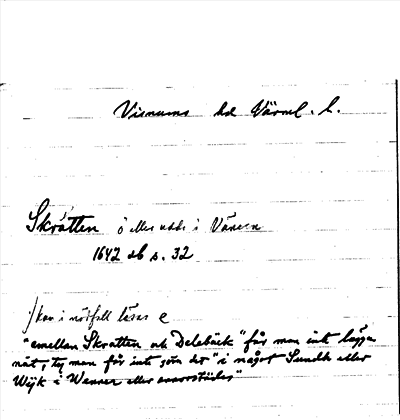 Visnums hd Värml. l.
Skråtten ö eller udde i Vänern
1642 db s. 32
) kan i nödfall läsas e
"emellan Skratten och Delebäck" får man inte lägga
nät, ty man får inte göra det "i något Sundh eller
Wijk i Wenner eller annorstädes"